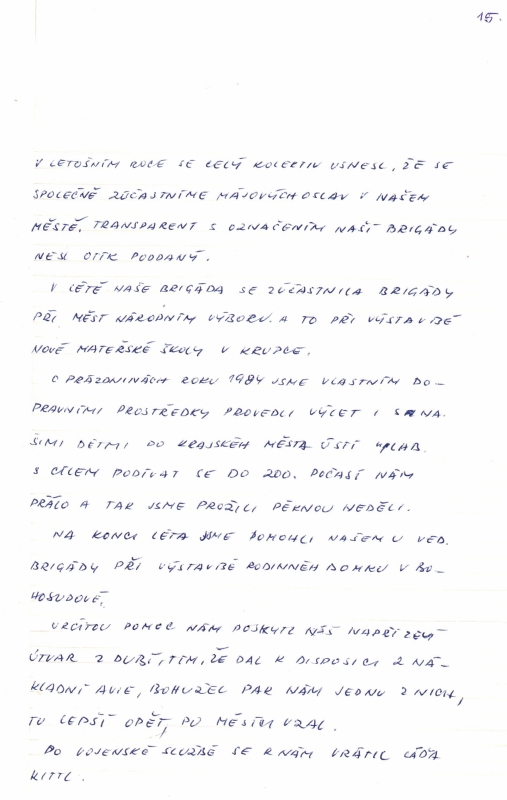 15.
V LETOŠNÍM ROCE SE CELÝ KOLEKTIV USNESL, ŽE SE
SPOLEČNĚ ZÚČASTNÍME MÁJOVÝCH OSLAV V NAŠEM
MĚSTĚ. TRANSPARENT S OZNAČENÍM NAŠÍ BRIGÁDY
NESL OTÍK PODDANÝ.
V LÉTĚ NAŠE BRIGÁDA SE ZÚČASTNILA BRIGÁDY
PŘI MĚST NÁRODNÍM VÝBORU. A TO PŘI VÝSTAVBĚ
NOVÉ MATEŘSKÉ ŠKOLY V KRUPCE.
O PRÁZDNINÁCH ROKU 1984 JSME VLASTNÍM DO-
PRAVNÍMI PROSTŘEDKY PROVEDLI VÝLET I S NA-
ŠIMI DĚTMI DO KRAJSKÉH MĚSTA ÚSTÍ n/LAB.
S CÍLEM PODÍVAT SE DO ZOO. POČASÍ NÁM
PŘÁLO A TAK JSME PROŽILI PĚKNOU NEDĚLI.
NA KONCI LÉTA JSME POMOHLI NAŠEMU VED.
BRIGÁDY PŘI VÝSTAVBĚ RODINNÉH DOMKU V BO-
HOSUDOVĚ.
URČITOU POMOC NÁM POSKYTL NÁŠ
ÚTVAR Z DUBÍ, TÍM, ŽE DAL K DISPOSICI 2 NÁ-
KLADNÍ AVIE, BOHUŽEL PAK NÁM JEDNU Z NICH,
TU LEPŠÍ OPĚT, PO MĚSÍCI VZAL.
PO VOJENSKÉ SLUŽBĚ SE K NÁM VRÁTIL LÁĎA
KITTL.